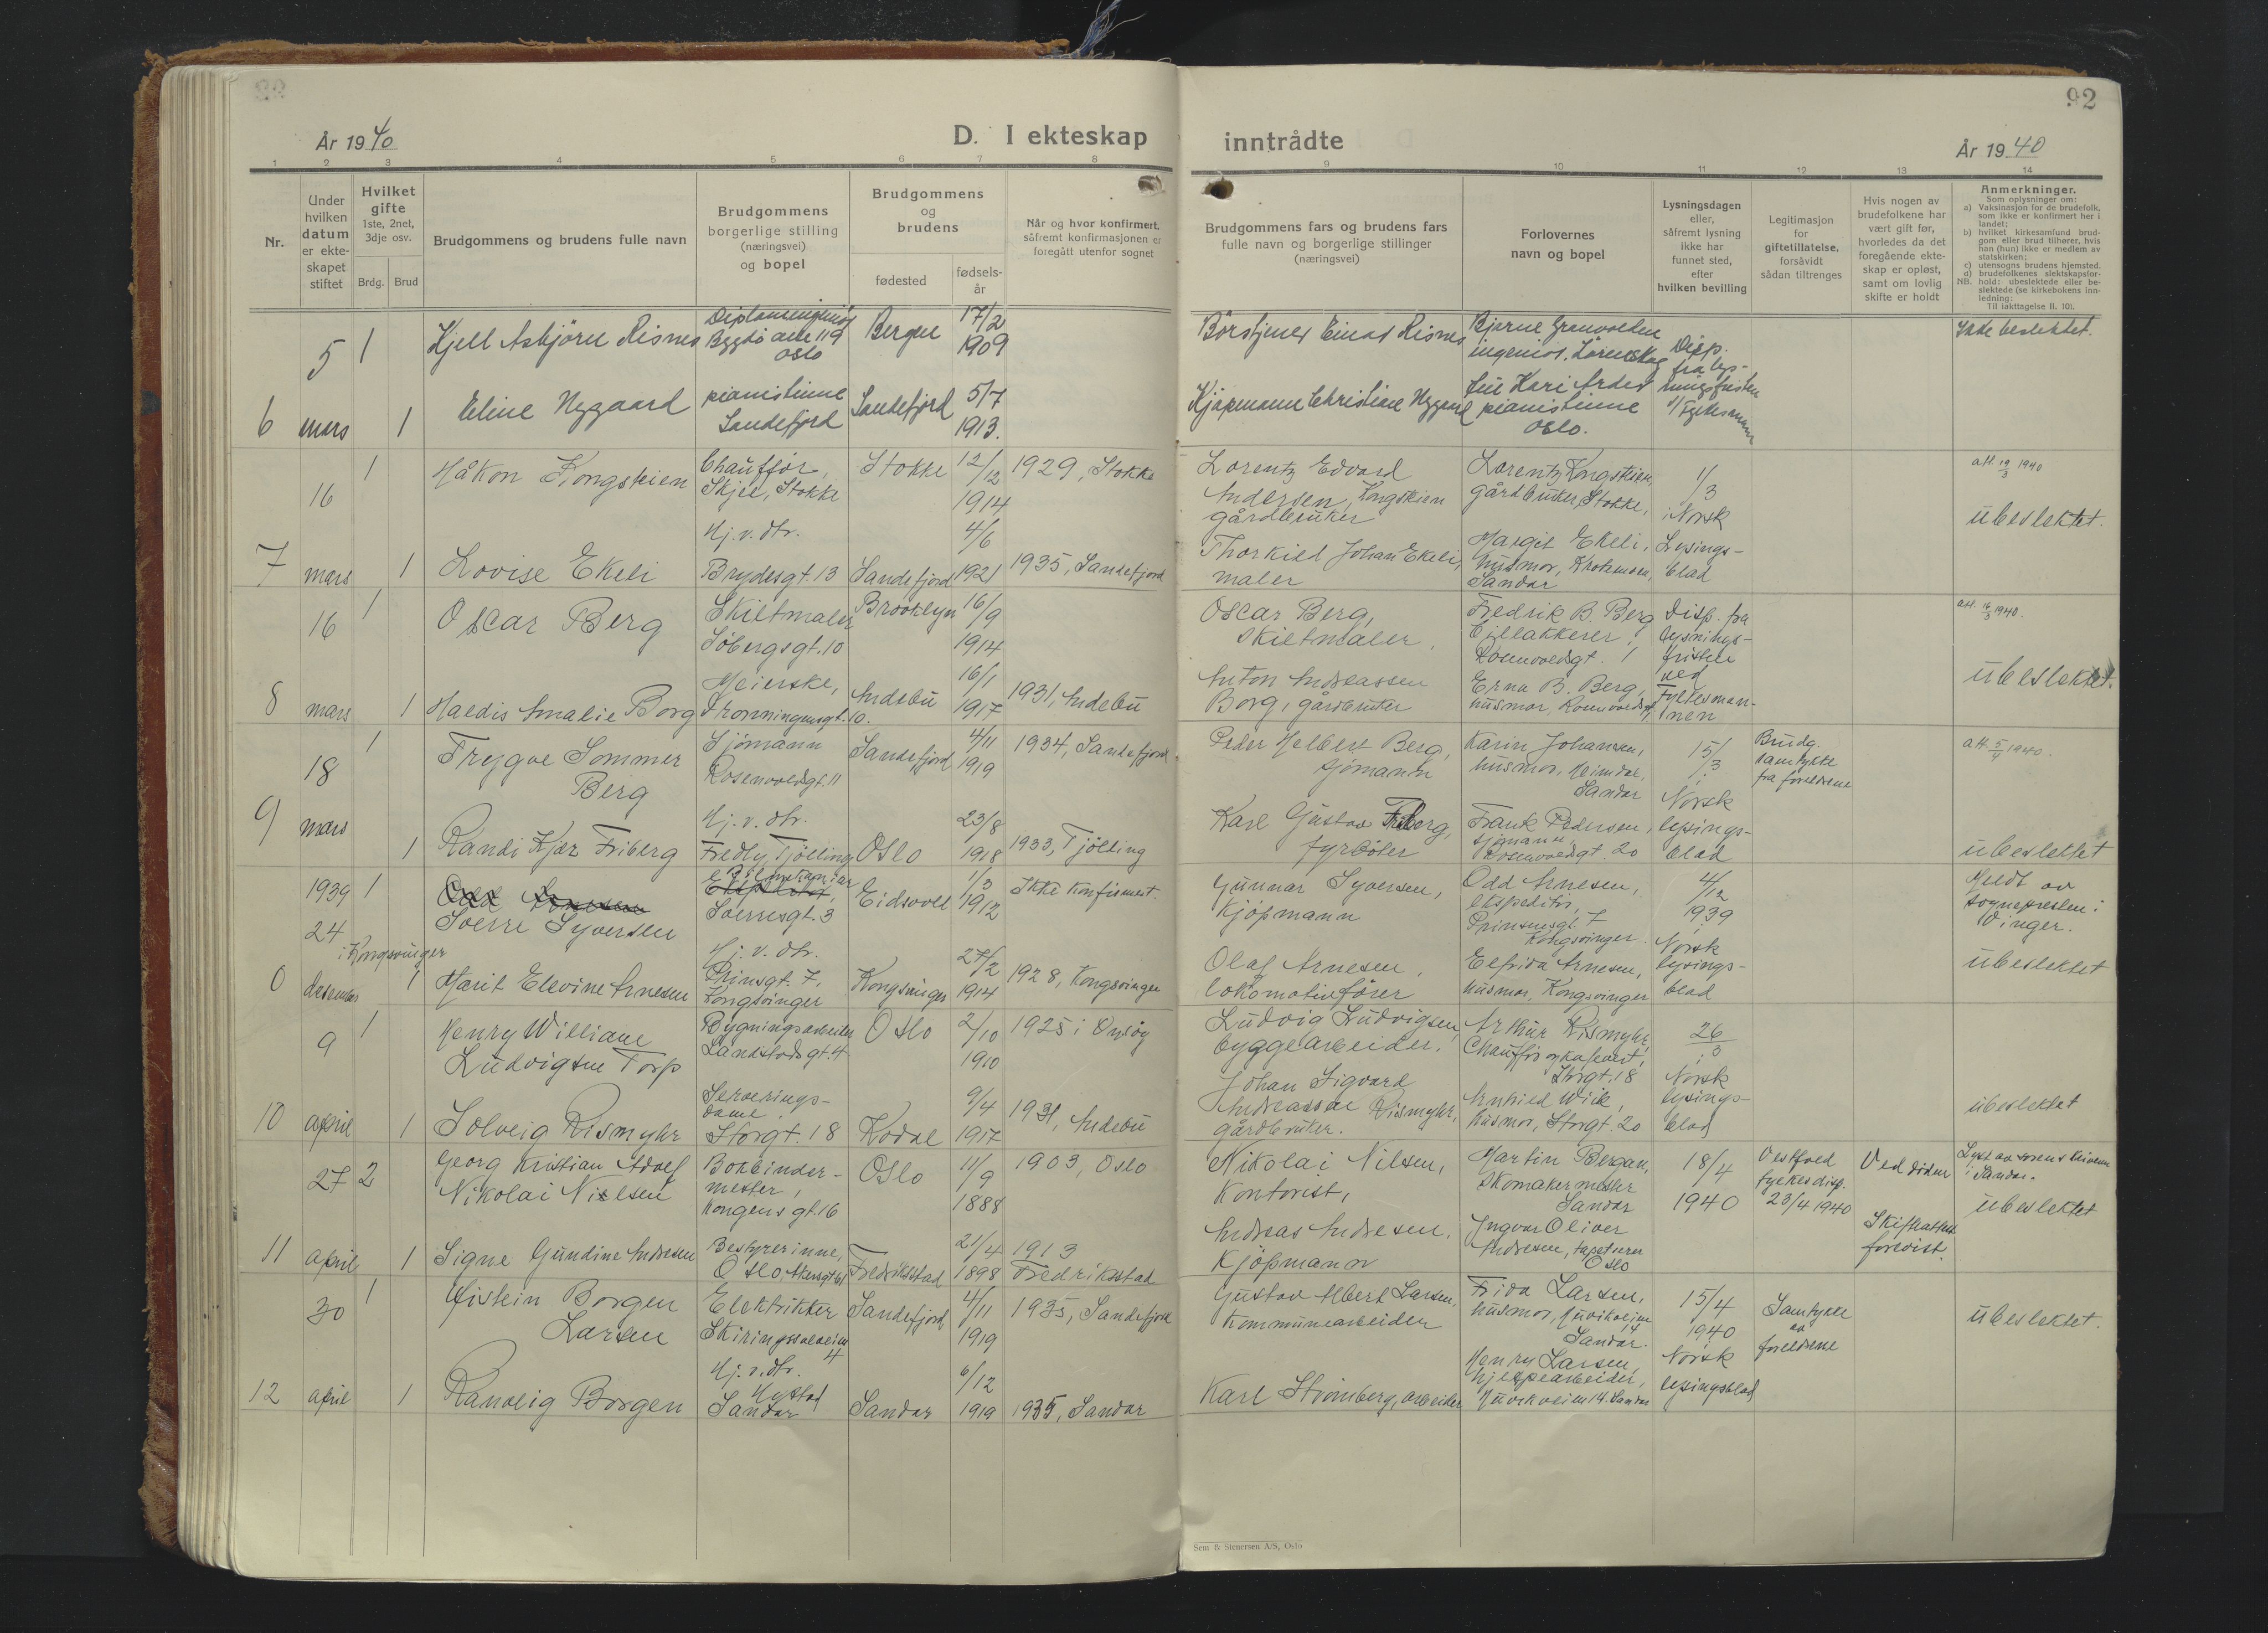 92
År 1940
D. I ekteskap inntrådte
År 1940
1 2 3 4 5 6 7 8 9 10 11 12 13 14
Nr.
Under
hvilken
datum
er ekte-
skapet
stiftet
Hvilket
gifte
1ste, 2net,
3dje osv.
Brdg. Brud
Brudgommens og brudens fulle navn
Brudgommens
borgerlige stilling
(næringsvei)
og bopel
Brudgommens
og
brudens
fødested
fødsels-
år
Når og hvor konfirmert,
såfremt konfirmasjonen er
foregått utenfor sognet
Brudgommens fars og brudens fars
fulle navn og borgerlige stillinger
(næringsvei)
Forlovernes
navn og bopel
Lysningsdagen
eller,
såfremt lysning
ikke har
funnet sted,
efter
hvilken bevilling
Legitimasjon
for
giftetillatelse,
forsåvidt
sådan tiltrenges
Hvis nogen av
brudefolkene har
vært gift før,
hvorledes da det
foregående ekte-
skap er opløst,
samt om lovlig
skifte er holdt
Anmerkninger.
Som oplysninger om:
a) Vaksinasjon for de brudefolk,
som ikke er konfirmert her i
landet;
b) hvilket kirkesamlund brud-
gom eller brud tilhører, hvis
han (hun) ikke er medlem av
statskirken;
c) utensogns brudens hjemsted.
d) brudefolkenes slektskapsfor-
hold: ubeslektede eller be-
slektede (se kirkebokens inn-
ledning:
NB.
Til iakttagelse II. 10).
6
5
mars
1
Kjell Asbjørn Risnes
Bygdø allé 119
Oslo
Bergen
17/2
1909
Børstjener Einar Risnes
Bjarne Granvolden
ingeniør, Lørenskog
Disp.
fra lys-
ningsfristen
v/ Fylkesmann
Ikke beslektet.
1
Eline Nygaard
pianistinne
Sandefjord
Sandefjord
5/7
1913.
Kjøpmann Christian Nygaard
pianistinne
Oslo.
7
16
mars
1
Håkon Kongsteien
Chauffør,
Skjee, Stokke
Stokke
12/12
1914
1929, Stokke
Lorentz Edvard
Andersen, Kongstien
gårdbruker
Lorentz Kongsteien,
gårdbruker, Stokke,
1/3
i Norsk
Lysings-
blad
att. 19/3 1940
ubeslektet.
1
Lovise Ekeli
Hj. v. dtr.
Brydesgt. 13
Sandefjord
4/6
1921
1935, Sandefjord
Thorkild Johan Ekeli,
maler
Margit Ekeli,
husmor, Krokemoen,
Sandar
8
16
mars
1
Oscar Berg
Skiltmaler
Søbergsgt. 10
Brooklyn
16/9
1914
Oscar Berg,
Skiltmaler.
Fredrik B. Berg
billakkerer,
Rosenvoldsgt. 1
Disp. fra
lysnings-
fristen
ved
Fylkesman-
nen
ubeslektet.
1
Haldis Amalie Borg
Meierske,
Dronningensgt. 10.
Andebu
16/1
1917
1931, Andebu
Anton Andreassen
Borg, gårdbruker
Erna B. Berg,
husmor, Rosenvoldsgt. 1
9
18
mars
1
Trygve Sommer
Berg
Sjømann
Rosenvoldsgt. 11
Sandefjord
4/11
1919
1934, Sandefjord
Peder Helbert Berg,
sjømann
Karin Johansen,
husmor, Heimdal,
Sandar
15/3
i
Norsk
lysings-
blad
Brudg.
samtykke
fra foreldrene
att. 5/4 1940.
1
Randi Kjær Friberg
Hj. v. dtr.
Fredly, Tjølling
Oslo
23/8
1918
1933, Tjølling
Karl Gustav Friberg,
fyrbøter
Frank Pedersen,
sjømann
Rosenvoldgt. 20
ubeslektet
0
1939
24
i Kongsvinger
desember
1
Odd Arnesen
Sverre Syversen
Bilmekaniker
Ekspeditør,
Sverresgt. 3
Eidsvoll
1/3
1912
Ikke konfirmert.
Gunnar Syversen,
Kjøpmann
Odd Arnesen,
ekspeditør,
Prinsensgt. 7
Kongsvinger.
4/12
1939
i
Norsk
lysings-
blad
Meldt av
sognepresten i
Vinger.
1
Marit Elevine Arnesen
Hj. v. dtr.
Prinsgt. 7,
Kongsvinger
Kongsvinger
27/2
1914
1928, Kongsvinger
Olaf Arnesen,
lokomotivfører
Elfrida Arnesen,
husmor, Kongsvinger
ubeslektet
10
9
april
1
Henry William
Ludvigsen Torp
Bygningsarbeider
Landstadsgt. 4
Oslo
2/10
1910
1925 i Onsøy
Ludvig Ludvigsen,
byggearbeider.
Arthur Rismyhr,
Storgt. 18
26/3
i
Norsk
lysings-
blad
1
Solveig Rismyhr
Serverings-
dame,
Storgt. 18
Kodal
9/4
1917
1931, Andebu
Johan Sigvard
Andreassen Rismyhr,
gårdbruker.
Arnhild Wiik,
husmor, Storgt. 20
ubeslektet
11
27
april
2
Georg Kristian Adolf
Nikolai Nilsen
Bokbinder-
mester,
Kongens gt. 16
Oslo
11/9
1888
1903, Oslo
Nikolai Nilsen,
Kontorist,
Martin Bergan,
Skomakermester
Sandar
18/4
1940
Vestfold
fylkes disp.
23/4 1940
Ved døden
Skifteattest
forevist.
Lyst av sorenskriveren
i Sandar.
ubeslektet
1
Signe Gundine Andresen
Bestyrerinne,
Oslo, Akersgt. 61
Fredrikstad
21/4
1898
1913
Fredriksstad
Andreas Andresen,
Kjøpmann
Ingvar Oliver
Andresen, tapetserer
Oslo
12
30
april
1
Øistein Borgen
Larsen
Elektriker
Skiringssalveien
4
Sandefjord
4/11
1919
1935, Sandefjord
Gustav Albert Larsen,
Kommunearbeider
Frida Larsen,
husmor,
14
Sandar.
15/4
1940
i
Norsk
lysingsblad
Samtykke
av
foreldrene
ubeslektet.
1
Ranveig Borgen
Hj. v. dtr.
Nystad
Sandar
Sandar
6/12
1919
1935, Sandar
Karl Strømberg, arbeider
Henry Larsen,
hjelpearbeider,
14. Sandar
Sem & Stenersen A/S, Oslo